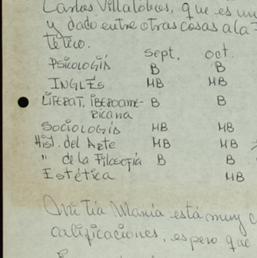 Carlos Villalobos, que es un
y dado entre otras cosas a la
tético.
sept. oct.
PSICOLOGÍA B B
INGLÉS MB MB
LITERAT. IBEROAME- B B
RICANA
SOCIOLOGÍA MB MB
Hist. del Arte MB MB
" de la Filosofía B B
Estética MB
Mi Tía María está muy c
calificaciones, espero que